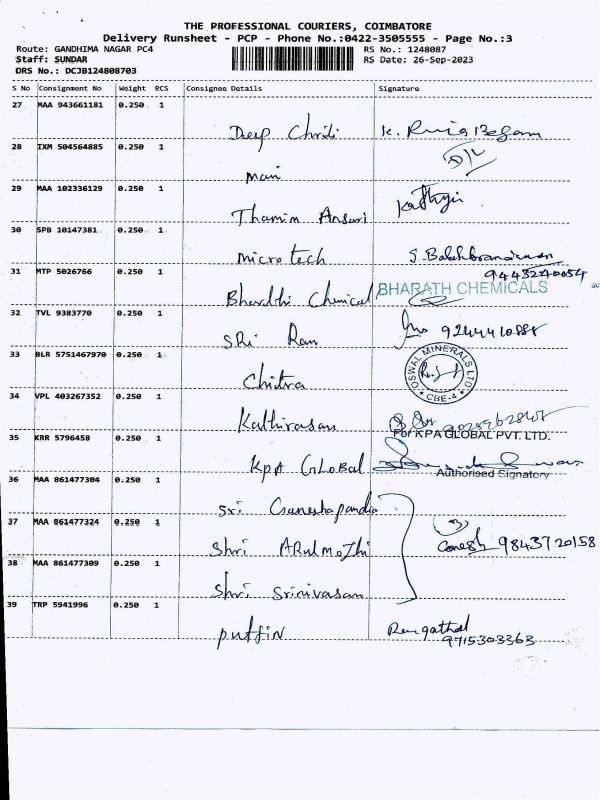 THE PROFESSIONAL COURIERS, COIMBATORE
Delivery Runsheet - PCP - Phone No.:0422-3505555 - Page No.:3
Route: GANDHIMA NAGAR PC4
RS No.: 1248087
Staff: SUNDAR
RS Date: 26-Sep-2023
DRS No.: DCJB124808703
S No Consignment No Weight PCS Consignee Details Signature
27 MAA 943661181 0.250 1
Deep
28 IXM 504564885 0.250 1
Mani
29 MAA 102336129 0.250 1
Thamim Ansari
30 SPB 10147381 0.250 1
Microtech
9443240054
31 MTP 5026766 0.250 1
Bharathi Chemical BHARATH CHEMICALS
32 TVL 9383770 0.250 1
SRi Ram
33 BLR 5751467970 0.250 1
Chitra OSWAL MINERALS LTD CBE-4
34 VPL 403267352 0.250 1
Kathirasan
For KPA GLOBAL PVT. LTD.
35 KRR 5796458 0.250 1
KPA GLOBAL
Authorised Signatory
36 MAA 861477304 0.250 1
Sri Ganeshapandia
37 MAA 861477324 0.250 1
Shri ARulmozhi Ganesh 9843720158
38 MAA 861477309 0.250 1
Shri Srinivasan
39 TRP 5941996 0.250 1
puffin Rengathal
9715303363